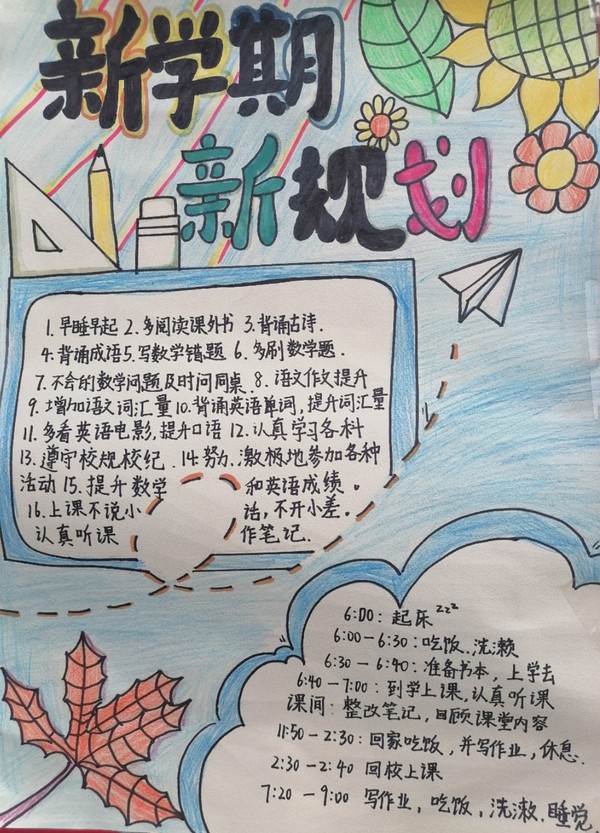 新学期
新规划
1.早睡早起 2.多阅读课外书 3.背诵古诗.
4.背诵成语5.写数学错题 6.多刷数学题.
7.不会的数学问题及时问同桌.8.语文作文提升
9.增加语文词汇量10.背诵英语单词,提升词汇量
11.多看英语电影,提升口语 12.认真学习各科
13.遵守校规校纪.14.努力.激极地参加各种
活动15.提升数学 和英语成绩。
16.上课不说小 话,不开小差。
认真听课 作笔记.
6:00:起床zzz
6:00-6:30:吃饭.洗漱
6:30-6:40:准备书本,上学去
6:40-7:00:到学上课,认真听课
课间:整改笔记,回顾课堂内容
11:50-2:30:回家吃饭,并写作业,休息.
2:30-2:40 回校上课
7:20-9:00 写作业,吃饭,洗漱.睡觉